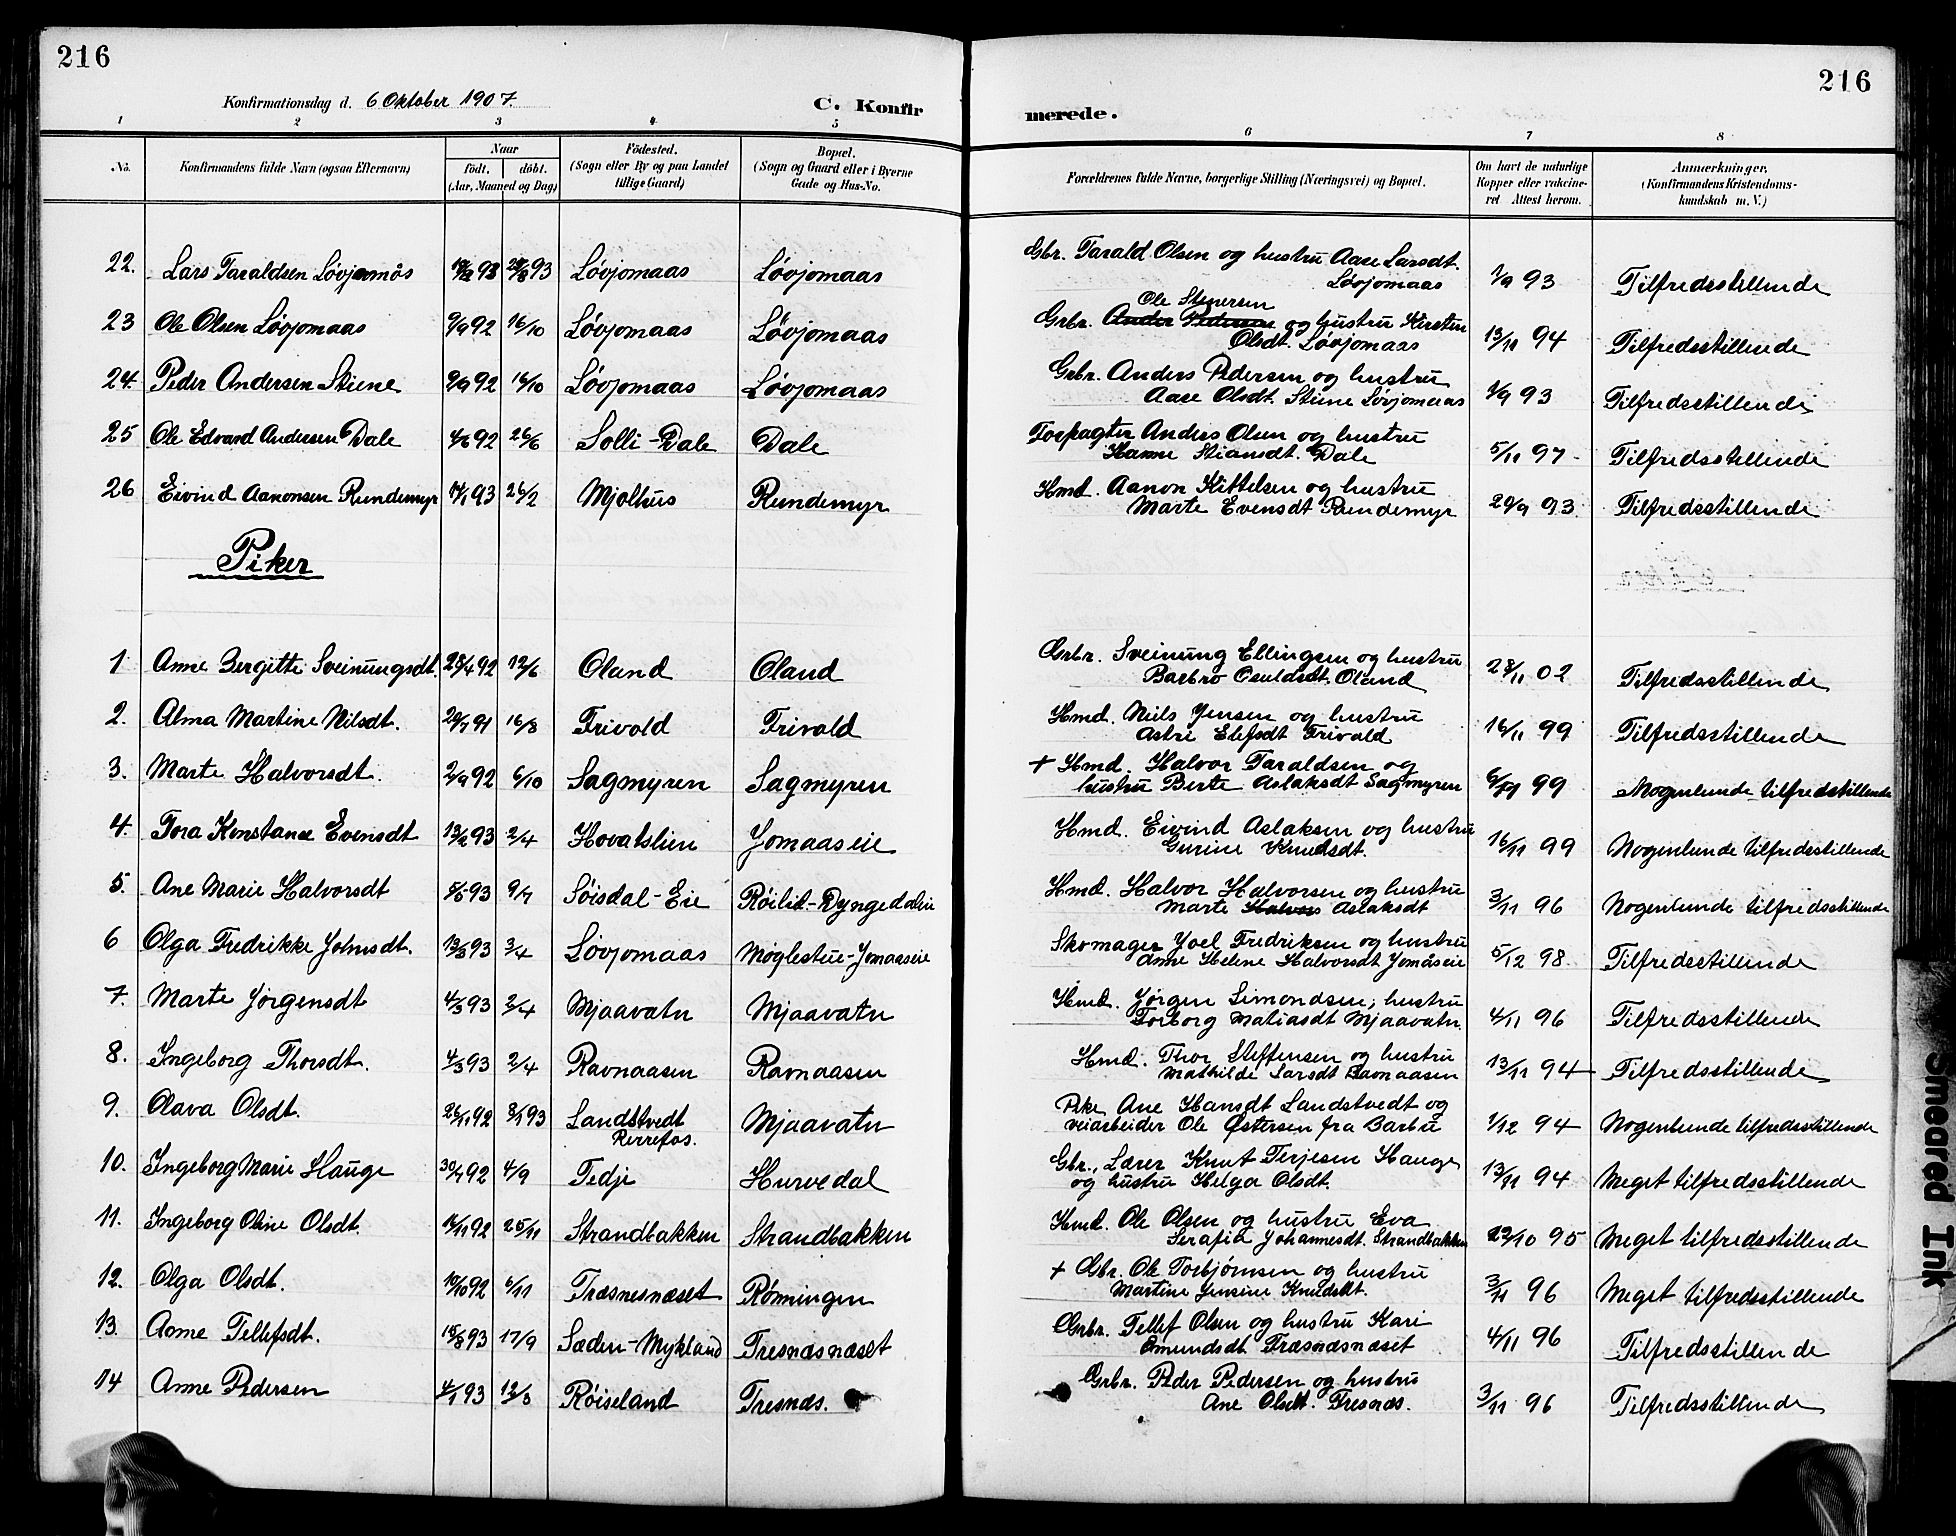 216
216
Konfirmationsdag d. 6 Oktober 1907.
C. Konfirmerede.
1 2 3 4 5 6 7 8
No. Konfirmandens fulde Navn (ogsaa Efternavn) Naar födt. döbt. (Aar, Maaned og Dag) Födested. (Sogn eller By og paa Landet tillige Gaard) Bopæl. (Sogn og Gaard eller i Byerne Gade og Hus-No. Forældrenes fulde Navne, borgerlige Stilling (Næringsvei) og Bopæl. Om havt de naturlige Kopper eller vakcineret Attest herom. Anmerkninger. (Konfirmandens Kristendomskundskab m. V.)
22. Lars Taraldsen Løvjomås Løvjomaas Løvjomaas Gbr. Tarald Olsen og hustru Aase Larsdt. Løvjomaas 1/9 93 Tilfredsstillende
23 Ole Olsen Løvjomaas 9/9 92 16/10 Løvjomaas Løvjomaas Grbr. Ander Pedersen Ole Stenersen og hustru Kirsten Olsdt. Løvjomaas 13/11 94 Tilfredsstillende
24. Peder Andersen Stiene 9/9 92 16/10 Løvjomaas Løvjomaas Grbr. Anders Pedersen og hustru Aase Olsdt. Stiene Løvjomaas 1/9 93 Tilfredsstillende
25 Ole Edvard Andersen Dale 4/6 92 26/6 Solli-Dale Dale Forpagter Anders Olsen og hustru Hanne Stiansdt. Dale 5/11 97 Tilfredsstillende
26 Eivind Aanonsen Rundemyr 14/1 93 26/2 Mjølhus Rundemyr Hmd. Aanon Kittelsen og hustru Marte Evensdt Rundemyr 20/9 93 Tilfredsstillende
Piker
1 Anne Bergitte Sveinungsdt. 28/4 92 12/6 Oland Oland Grbr. Sveinung Ellingsen og hustru Barbro Osuldsdt. Oland 28/11 02 Tilfredsstillende
2. Alma Martine Nilsdt. 20/7 91 16/8 Trivold Trivold Hmd. Niels Jensen og hustru Astri Elefsdt Trivold 16/11 99 Tilfredsstillende
3. Marte Halvorsdt. 2/9 92 6/10 Sagmyren Sagmyren + Hmd. Halvor Taraldsen og hustru Berte Aslaksdt Sagmyren 99 Nogenlunde tilfredsstillende
4. Tora Konstanse Evensdt 13/2 93 2/4 Hovatslien Jomaaseie Hmd. Eivind Aslaksen og hustru Gurine Knudsdt. 16/11 99 Nogenlunde tilfredsstillende
5. Ane Marie Halvorsdt 93 9/7 Søisdal-Eie Røilid-Dyngedaleie Hmd. Halvor Halvorsen og hustru Marte Halvors Aslaksdt 3/11 96 Nogenlunde tilfredsstillende
6 Olga Fredrikke Johnsdt. 13/3 93 3/4 Løvjomaas Møglestue-Jomaaseie Skomager Joel Fredriksen og hustru Anne Helene Halvorsdt Jomåseie 5/12 98. Tilfredsstillende
7. Marte Jørgensdt 4/3 93 2/4 Mjaavatn Mjaavatn Hmd. Jørgen Simondsen, hustru Torborg Matiasdt Mjaavatn. 4/11 96 Tilfredsstillende
8. Ingeborg Thorsdt. 4/3 93 2/4 Ravnaasen Ravnaasen Hmd. Thor Steffensen og hustru Mathilde Larsdt Ravnaasen 13/11 94 Tilfredsstillende
9. Olava Olsdt. 26/11 92 8/1 93 Landstvedt Rerrefos. Mjaavatn Pike Ane Hansdt Landstvedt og veiarbeider Ole Østersen fra Barbu 1/12 94 Nogenlunde tilfredsstillende
10. Ingeborg Marie Hauge 30/7 92 4/9 Tedje Hurvedal Gbr., Lærer Knut Terjesen Hauge og hustru Helga Olsdt. 13/11 94 Meget tilfredsstillende
11. Ingeborg Oline Olsdt. 92 25/11 Strandbakken Strandbakken Hmd. Ole Olsen og hustru Eva Serafia Johannesdt. Strandbakken 22/10 95 Meget tilfredsstillende
12. Olga Olsdt. 10/10 92 6/11 Træsnesnæset Rønningen + Gbr. Ole Torbjørnsen og hustru Martine Jensine Knudsdt. 3/11 96 Meget tilfredsstillende
13. Anne Tellefsdt. 15/8 93 17/9 Sæden-Mykland Tresnæsnæset Grbr. Tellef Olsen og hustru Kari Omundsdt Træsnæsnæset 4/11 96 Tilfredsstillende
14 Anne Pedersen 4/1 93 12/3 Røiseland Tresnæs. Grbr. Peder Pedersen og hustru Ane Olsdt. Tresnæs. 3/11 96 Tilfredsstillende
Smeared Ink